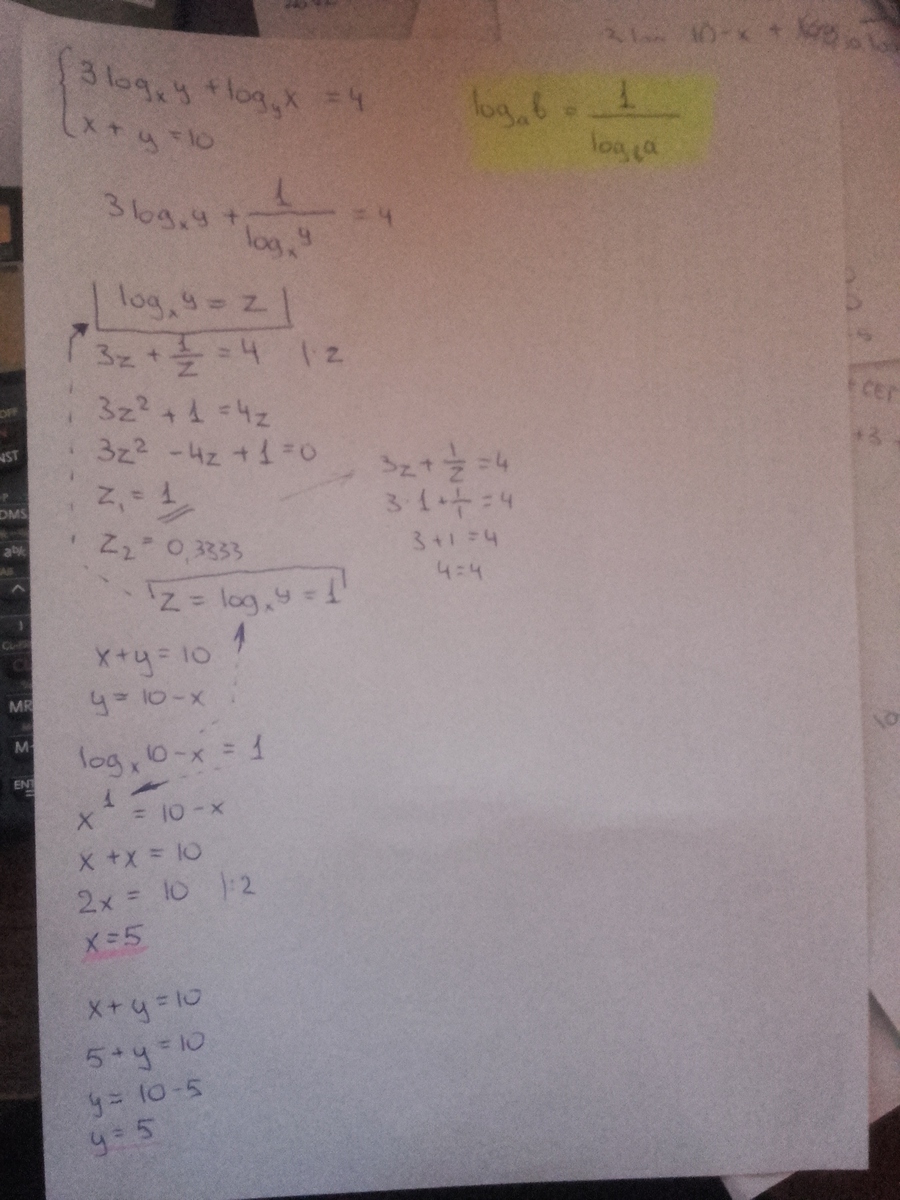 3 log_x y + log_y x = 4
x + y = 10
log_a b = 1 / log_b a
3 log_x y + 1 / log_x y = 4
log_x y = z
3z + 1/z = 4 |·z
3z² + 1 = 4z
3z² - 4z + 1 = 0
z₁ = 1
z₂ = 0,3333
3z + 1/z = 4
3·1 + 1/1 = 4
3 + 1 = 4
4 = 4
z = log_x y = 1
x + y = 10
y = 10 - x
log_x 10 - x = 1
x¹ = 10 - x
x + x = 10
2x = 10 |:2
x = 5
x + y = 10
5 + y = 10
y = 10 - 5
y = 5
OFF
DMS
MR
M-